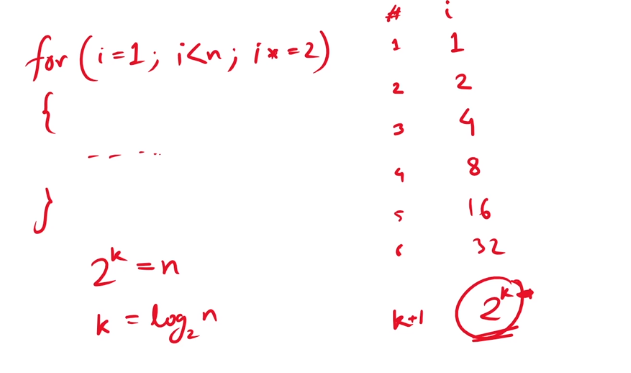 for (i=1; i<n; i*=2)
{
-- -- ...
}
2^k = n
k = log₂ n
# i
1 1
2 2
3 4
4 8
5 16
6 32
k+1 2^k